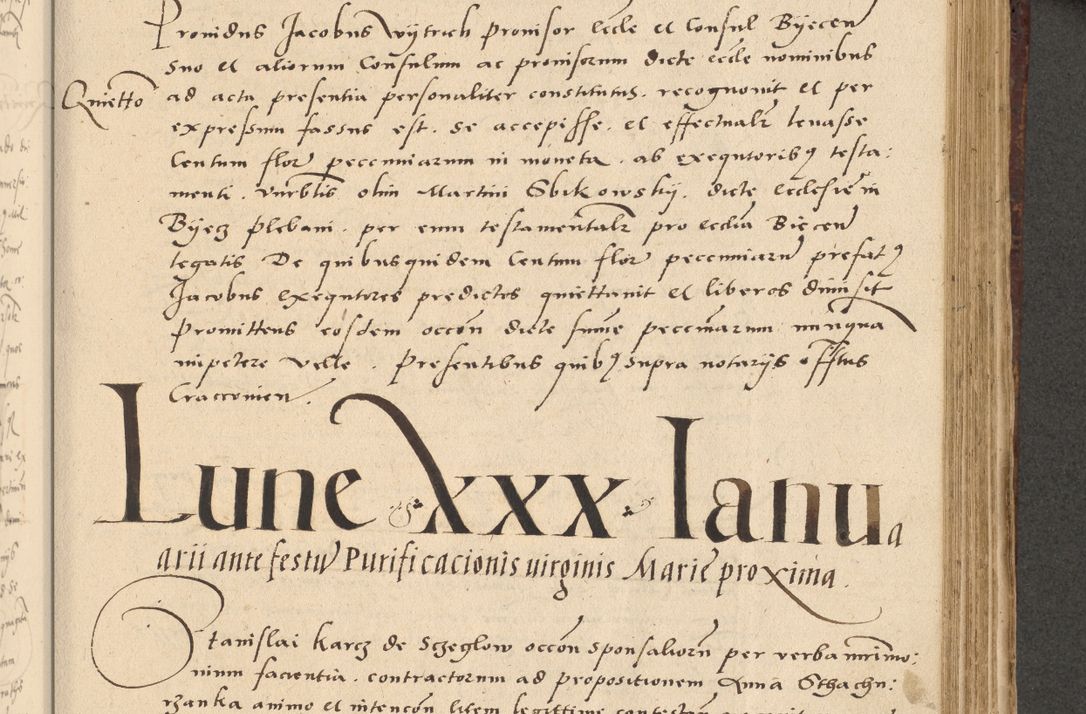 Providus Jacobus Wÿtrich provisor eccle et Consul Bÿecen
suo et aliorum Consulum ac provisorum dicte eccle nominibus
Quietto
ad acta presentia personaliter constitutus. recognovit et per
expressum fassus est. se accepisse. et effectualr levasse
Centum flor peccuniarum in moneta. ab exequtoribus testa:
menti. olim Martini Sbikowskÿ. dicte ecclesie in
Bÿecz plebani. per eum testamentalr pro ecclia Biecen
legatis De quibusquidem Centum flor peccuniaru prefatus
Jacobus exequtores predictos quiettavit et liberos dimisit
Promittens eosdem occon dicte summe peccuniarum nunqua
impetere velle. Presentibus quibus supra notarÿs
Cracovien.
Lune xxx Ianua
arii ante festu Purificacionis virginis Marie proxima.
Stanislai Karcz de Sczeglow occon sponsaliorum per verba
nium facientia. contractorum ad propositionem Anna Sthachu:
rzanka animo et intencon litem legittime